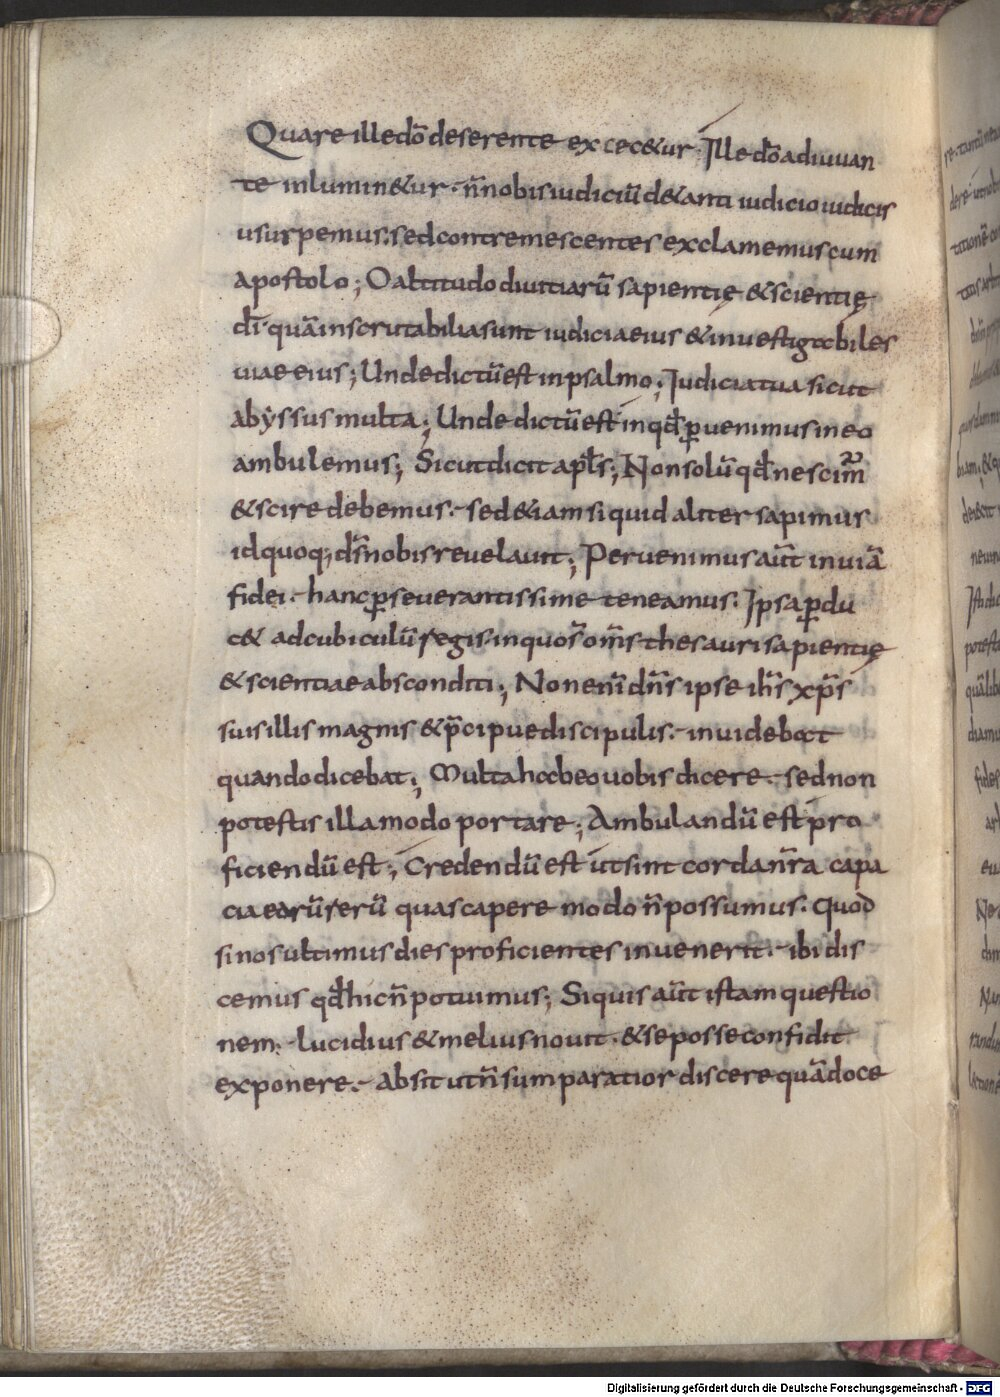 Quare ille dõ deserente excec&ur. Ille dõ adiuuan
te inlumin&ur · n̄ nobis iudiciū d&anti iudicio iudicis
usurpemus. sed contremescentes exclamemus cum
apostolo; O altitudo diuitiarū sapientię & scientię
dī · quā inscrutabilia sunt iudicia eius & inuestigabiles
uiae eius; Unde dictū est in psalmo; Iudicia tua sicut
abyssus multa; Unde dictū est inqđ ꝑuenimus in eo
ambulemus; Sicut dicit apłs; Non solū qđ nescim̃
& scire debemus · sed &iam si quid aliter sapimus
id quoq; dš nobis reuelauit; Peruenimus aūt in uiā
fidei · hanc ꝑseuerantissime teneamus. Ipsa ꝑdu
c& ad cubiculū regis · in quo š om̄s thesauri sapientię
& scientiae absconditi; Non enī dn̄s ipse ih̄s xp̄s
suis illis magnis & p̄cipue discipulis · inuidebat
quando dicebat; Multa habeo uobis dicere · sed non
potestis illa modo portare; Ambulandū est pro
ficiendū est; Credendū est ut sint corda nr̄a capa
cia earū rerū quas capere modo n̄ possumus. Quod
si nos ultimus dies proficientes inuenerit · ibi dis
cemus qđ hic n̄ potuimus; Si quis aūt istam questio
nem · lucidius & melius nouit · & se posse confidit
exponere · Absit ut n̄ sum paratior discere quā doce
Digitalisierung gefördert durch die Deutsche Forschungsgemeinschaft - DFG